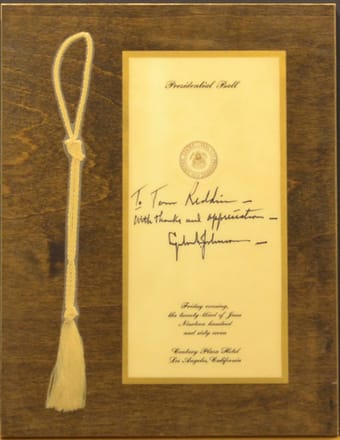 Presidential Ball
To Tom Reddin —
With thanks and appreciation —
Lyndon B. Johnson —
Friday evening,
the twenty-third of June
Nineteen hundred
and sixty seven
Century Plaza Hotel
Los Angeles, California